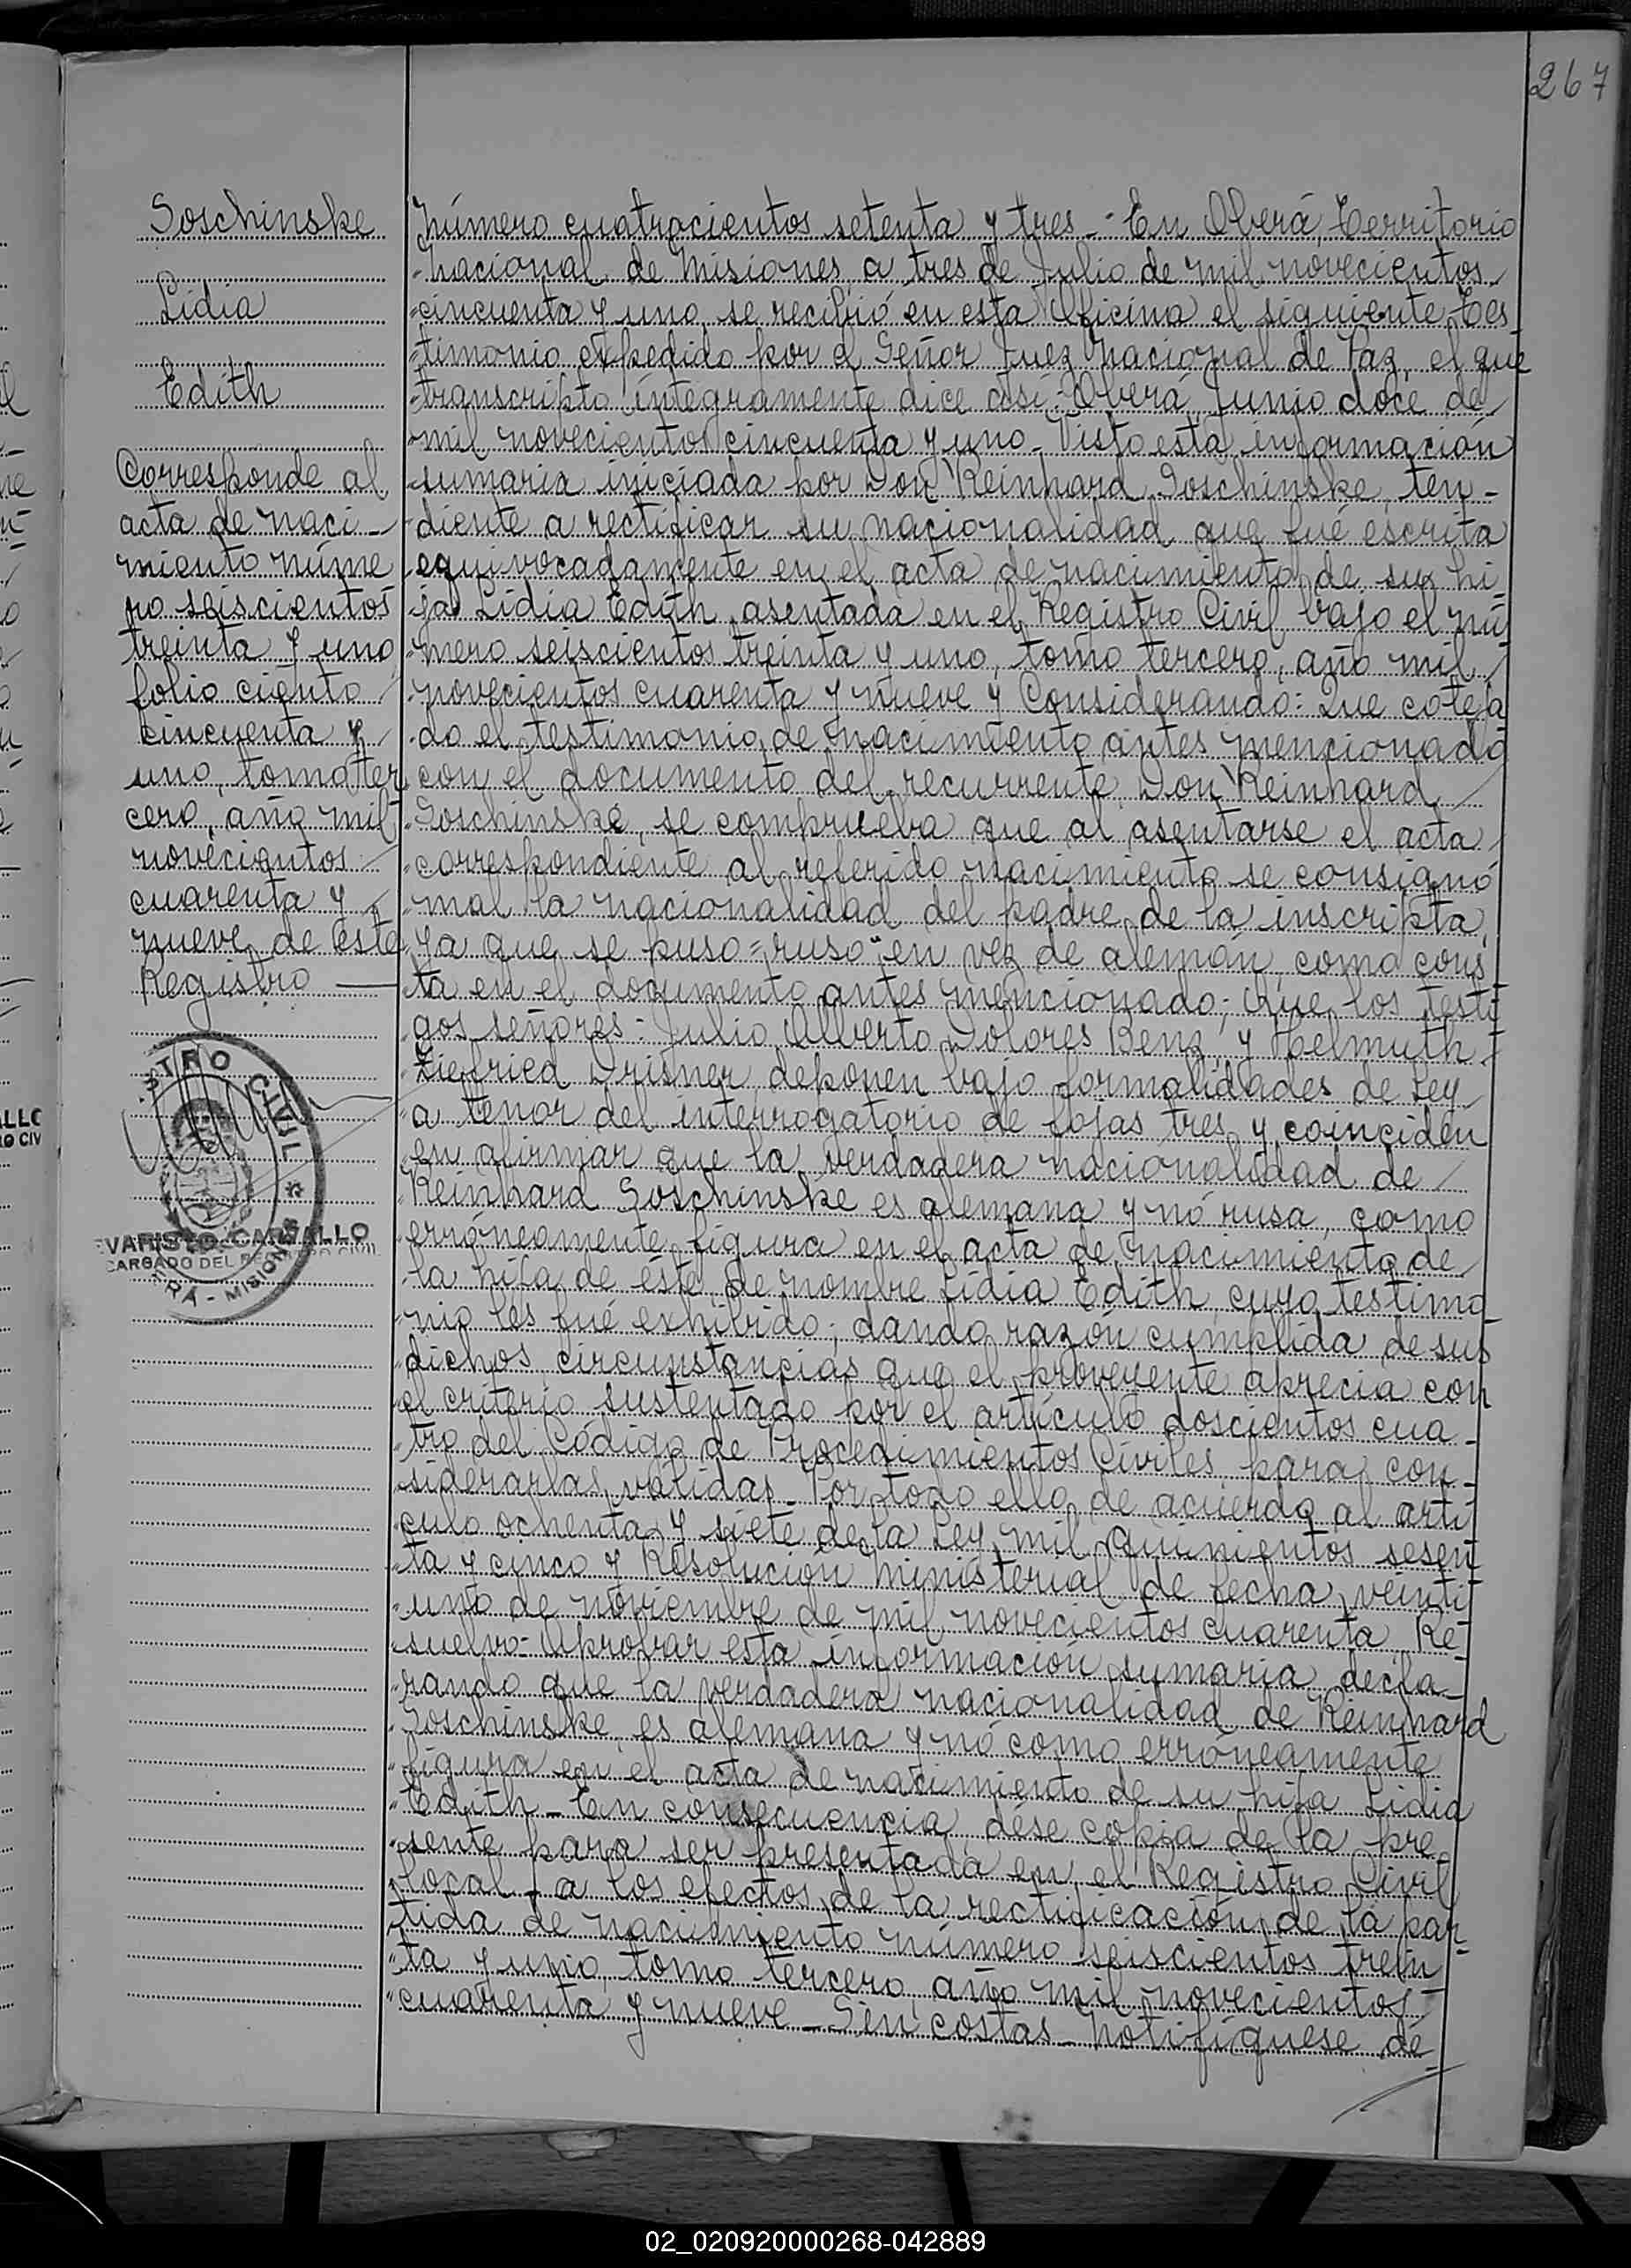 267
Soschinske
Lidia
Edith
Corresponde al
acta de naci-
miento núme
ro seiscientos
treinta y uno
folio ciento
cincuenta y
uno, tomo ter
cero, año mil
novecientos
cuarenta y
nueve de este
Registro
STRO CIVIL
EVARISTO CARBALLO
CARGADO DEL
MISIONES
Número cuatrocientos setenta y tres.- En Oberá, Territorio
Nacional de Misiones, a tres de Julio de mil novecientos
cincuenta y uno, se recibió en esta Oficina el siguiente Tes
timonio expedido por el Señor Juez Nacional de Paz, el que
transcripto íntegramente dice así: Oberá, Junio doce de
mil novecientos cincuenta y uno- Visto esta información
sumaria iniciada por Don Reinhard Soschinske, ten-
diente a rectificar su nacionalidad que fué escrita
equivocadamente en el acta de nacimiento de su hi
ja Lidia Edith, asentada en el Registro Civil bajo el nú
mero seiscientos treinta y uno, tomo tercero, año mil
novecientos cuarenta y nueve y Considerando: Que coteja
do el testimonio de nacimiento antes mencionado
con el documento del recurrente Don Reinhard
Soschinske, se comprueba que al asentarse el acta
correspondiente al referido nacimiento se consignó
mal la nacionalidad del padre de la inscripta,
ya que se puso "ruso" en vez de alemán, como cons
ta en el documento antes mencionado; Que los testi
gos señores: Julio Alberto Dolores Benz y Helmuth
Ziefried Drisner deponen bajo formalidades de Ley
a tenor del interrogatorio de fojas tres y coinciden
en afirmar que la verdadera nacionalidad de
Reinhard Soschinske es alemana y nó rusa, como
erróneamente figura en el acta de nacimiento de
la hija de éste, de nombre Lidia Edith, cuyo testimo
nio les fué exhibido; dando razón cumplida de sus
dichos circunstancias que el proveyente aprecia con
el criterio sustentado por el artículo doscientos cua-
tro del Código de Procedimientos Civiles para con-
siderarlas válidas- Por todo ello, de acuerdo al artí
culo ochenta y siete de la Ley mil quinientos sesen
ta y cinco y Resolución Ministerial de fecha veinti
uno de noviembre de mil novecientos cuarenta, Re-
suelvo- Aprobar esta información sumaria decla-
rando que la verdadera nacionalidad de Reinhard
Soschinske es alemana y nó como erróneamente
figura en el acta de nacimiento de su hija Lidia
Edith- En consecuencia, dése copia de la pre
sente para ser presentada en el Registro Civil
local, a los efectos de la rectificación de la par-
tida de nacimiento número seiscientos trein
ta y uno, tomo tercero, año mil novecientos
cuarenta y nueve- Sin costas- Notifíquese de
02_020920000268-042889